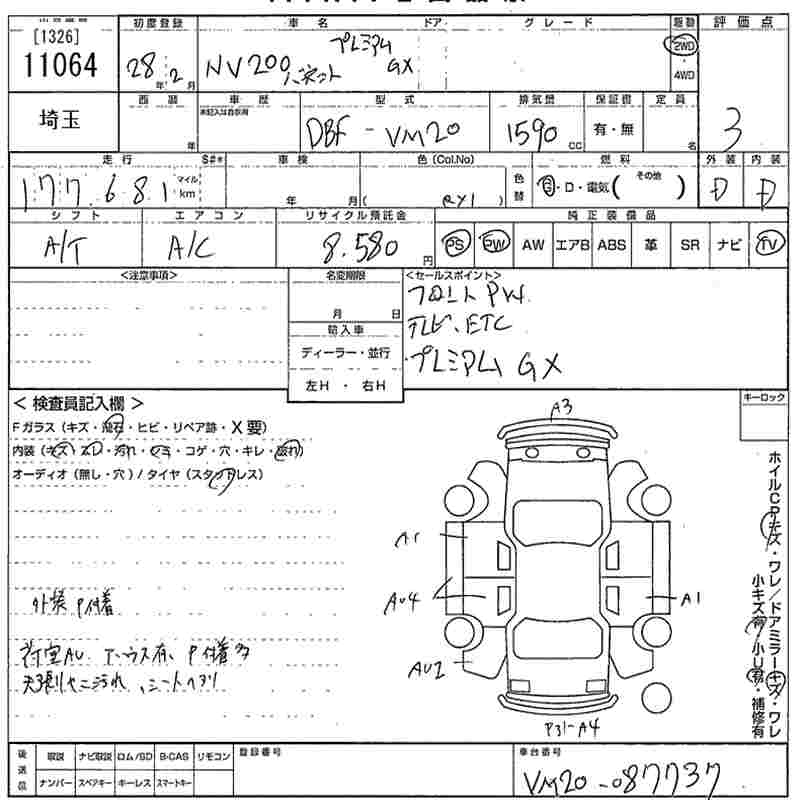 [1326]
11064
初度登録
28年2月
車名 ドア グレード
NV200バネット プレミアム GX
駆動
2WD
4WD
評価点
3
埼玉
西暦
年
車歴
未記入は自家用
型式
DBF-VM20
排気量
1590 cc
保証書
有・無
定員
名
走行
177,681
マイル
km
S#*
車検
年 月
色(Col.No)
( RY1 )
色替
燃料
G・D・電気( その他 )
外装
D
内装
D
シフト
A/T
エアコン
A/C
リサイクル預託金
8,580 円
純正装備品
PS PW AW エアB ABS 革 SR ナビ TV
<注意事項>
名変期限
月 日
輸入車
ディーラー・並行
左H・右H
<セールスポイント>
フロント PW.
テレビ、ETC
プレミアム GX
<検査員記入欄>
Fガラス(キズ・飛石・ヒビ・リペア跡・X要)
内装(キズ・スレ・汚れ・シミ・コゲ・穴・キレ・破れ)
オーディオ(無し・穴)/タイヤ(スタッドレス)
外装 P付着
荷室AU
P付着多
天張りヤニ汚れ、シートヘタリ
キーロック
A3
A1
AU4
A1
AU2
ホイルCP・キズ・ワレ/ドアミラーキズ・ワレ
小キズ有・小U有・補修有
後送品
取説 ナビ取説 ロム/SD B-CAS リモコン
ナンバー スペアキー キーレス スマートキー
登録番号
車台番号
VM20-087737